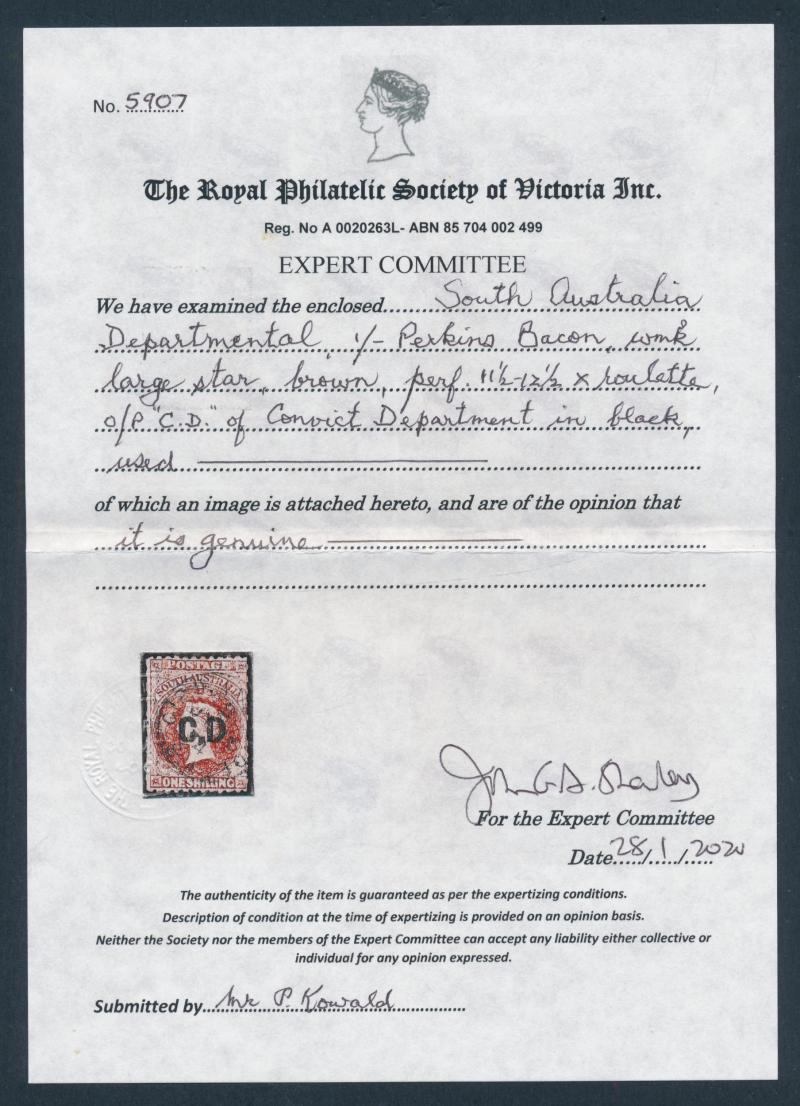 No. 5907
The Royal Philatelic Society of Victoria Inc.
Reg. No A 0020263L- ABN 85 704 002 499
EXPERT COMMITTEE
We have examined the enclosed South Australia
Departmental, 1/- Perkins Bacon, wmk
large star, brown, perf. 11½-12½ x roulette,
o/p "C.D." of Convict Department in black,
used
of which an image is attached hereto, and are of the opinion that
it is genuine
POSTAGE
SOUTH AUSTRALIA
C.D
ONE SHILLING
THE ROYAL
For the Expert Committee
Date 28/1/2020
The authenticity of the item is guaranteed as per the expertizing conditions.
Description of condition at the time of expertizing is provided on an opinion basis.
Neither the Society nor the members of the Expert Committee can accept any liability either collective or
individual for any opinion expressed.
Submitted by Mr P. Kowald